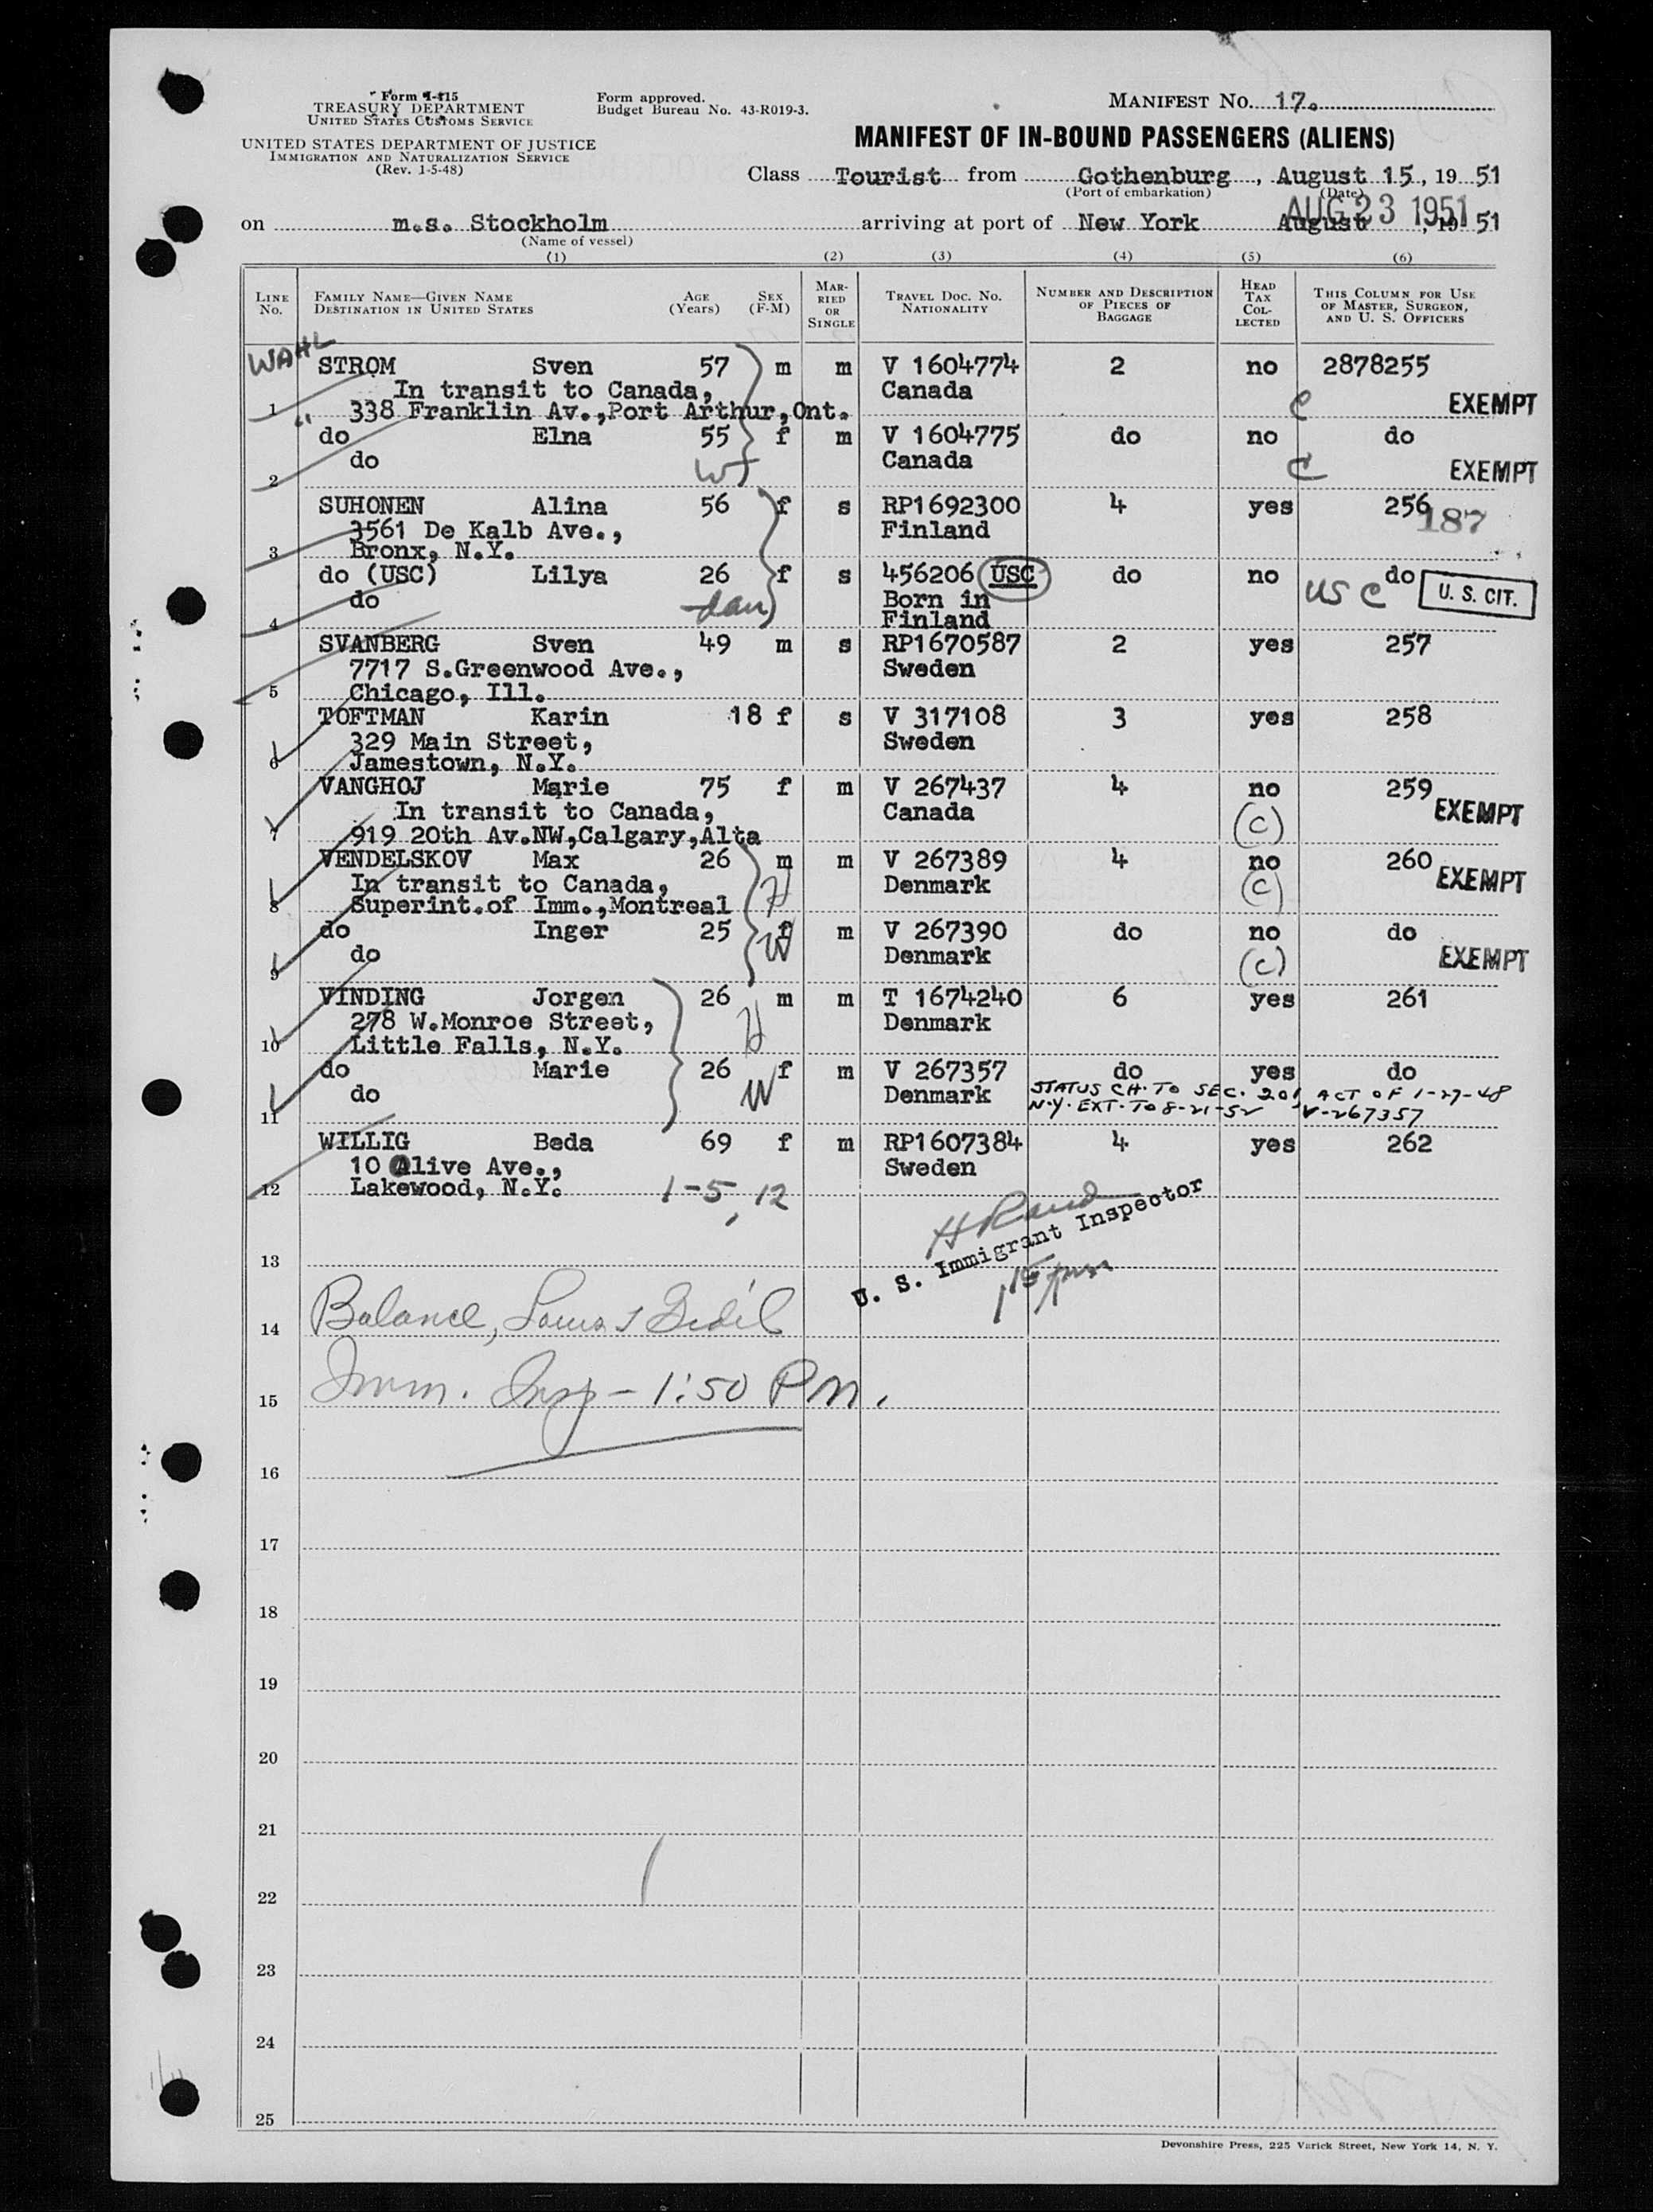 Form I-415
TREASURY DEPARTMENT
UNITED STATES CUSTOMS SERVICE
UNITED STATES DEPARTMENT OF JUSTICE
IMMIGRATION AND NATURALIZATION SERVICE
(Rev. 1-5-48)
Form approved.
Budget Bureau No. 43-R019-3.
MANIFEST NO. 17.
MANIFEST OF IN-BOUND PASSENGERS (ALIENS)
Class Tourist from Gothenburg, August 15, 19 51
(Port of embarkation) (Date)
AUG 23 1951
on m.s. Stockholm arriving at port of New York August , 19 51
(Name of vessel)
(1) (2) (3) (4) (5) (6)
LINE NO. FAMILY NAME—GIVEN NAME DESTINATION IN UNITED STATES AGE (Years) SEX (F-M) MARRIED OR SINGLE TRAVEL DOC. NO. NATIONALITY NUMBER AND DESCRIPTION OF PIECES OF BAGGAGE HEAD TAX COLLECTED THIS COLUMN FOR USE OF MASTER, SURGEON, AND U. S. OFFICERS
WAHL
STROM Sven 57 m m V 1604774 2 no 2878255
In transit to Canada, Canada
1 338 Franklin Av.,Port Arthur,Ont. C EXEMPT
do Elna 55 f m V 1604775 do no do
do Canada
2 wf C EXEMPT
SUHONEN Alina 56 f s RP1692300 4 yes 256
3561 De Kalb Ave., Finland 187
3 Bronx, N.Y.
do (USC) Lilya 26 f s 456206 USC do no do
do dau Born in US C U. S. CIT.
4 Finland
SVANBERG Sven 49 m s RP1670587 2 yes 257
7717 S.Greenwood Ave., Sweden
5 Chicago, Ill.
TOFTMAN Karin 18 f s V 317108 3 yes 258
329 Main Street, Sweden
6 Jamestown, N.Y.
VANGHOJ Marie 75 f m V 267437 4 no 259
In transit to Canada, Canada EXEMPT
7 919 20th Av.NW,Calgary,Alta (C)
VENDELSKOV Max 26 m m V 267389 4 no 260
In transit to Canada, H Denmark (C) EXEMPT
8 Superint.of Imm.,Montreal
do Inger 25 f m V 267390 do no do
do W Denmark (C) EXEMPT
9
VINDING Jorgen 26 m m T 1674240 6 yes 261
278 W.Monroe Street, H Denmark
10 Little Falls, N.Y.
do Marie 26 f m V 267357 do yes do
do W Denmark STATUS CH. TO SEC. 201 ACT OF 1-27-48
11 N.Y. EXT. TO 8-21-52 V-267357
WILLIG Beda 69 f m RP1607384 4 yes 262
10 Alive Ave., Sweden
12 Lakewood, N.Y. 1-5, 12
H Rand
U. S. Immigrant Inspector
13
1 15 pm
14 Balance, Louis
15 Imm. Insp - 1:50 PM.
16
17
18
19
20
21
22
23
24
25
Devonshire Press, 225 Varick Street, New York 14, N. Y.